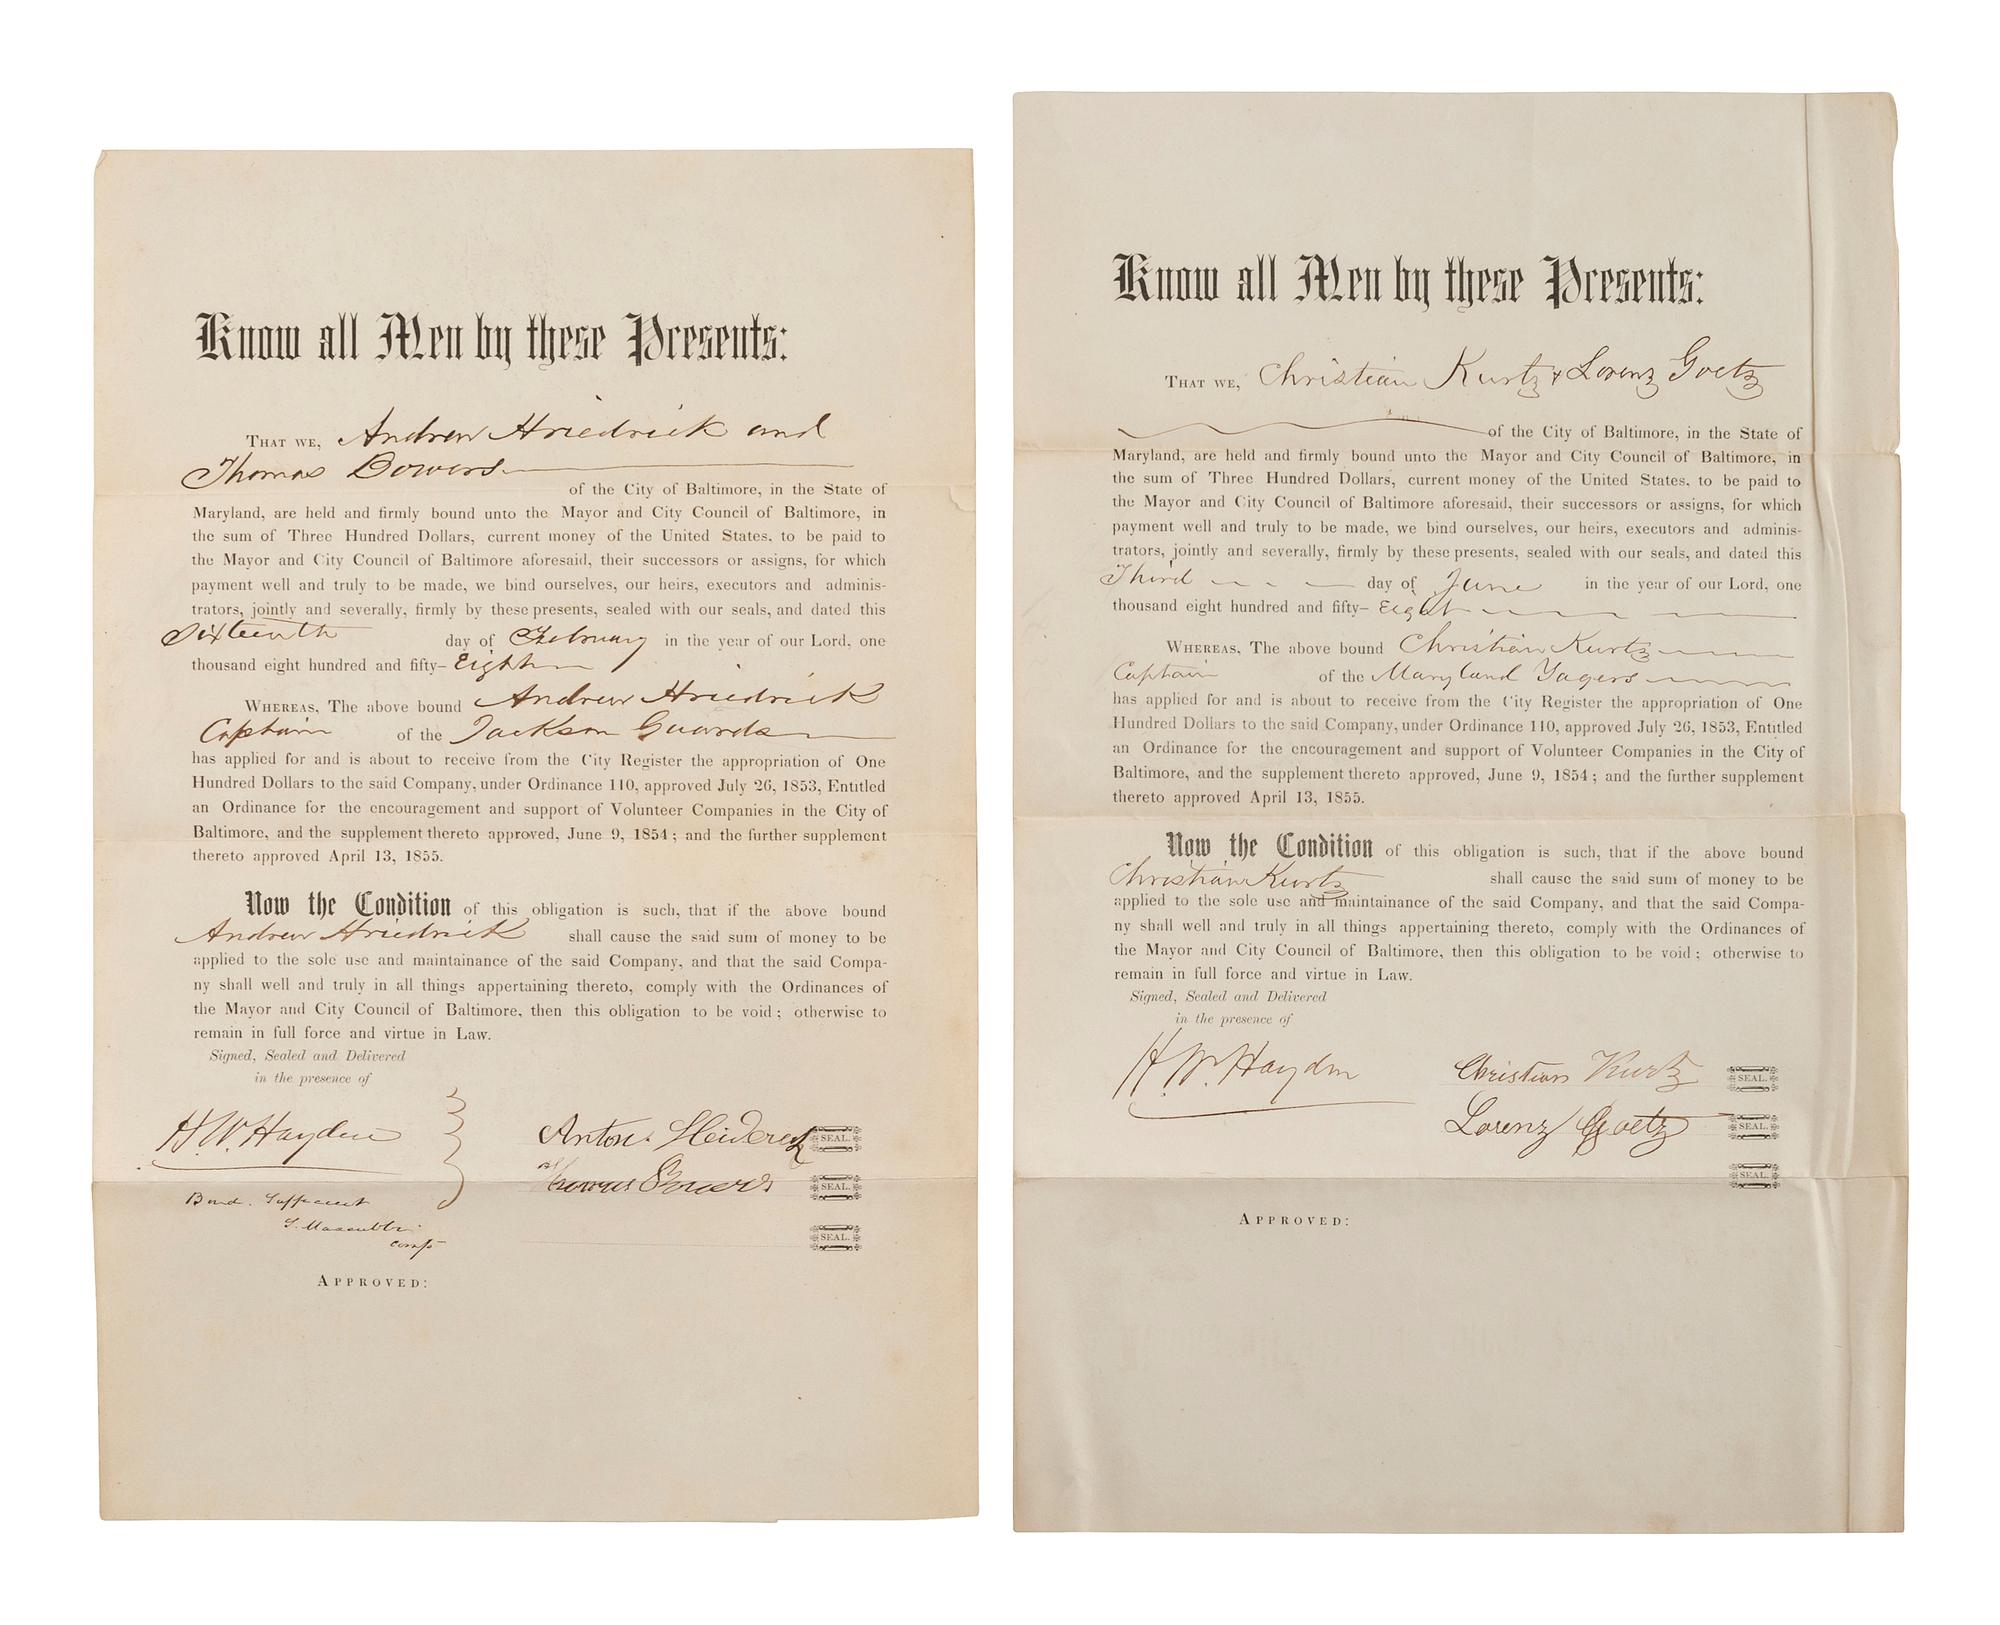 Know all Men by these Presents:
THAT WE, Andrew Hriedrick and
Thomas Bowers
of the City of Baltimore, in the State of
Maryland, are held and firmly bound unto the Mayor and City Council of Baltimore, in
the sum of Three Hundred Dollars, current money of the United States, to be paid to
the Mayor and City Council of Baltimore aforesaid, their successors or assigns, for which
payment well and truly to be made, we bind ourselves, our heirs, executors and adminis-
trators, jointly and severally, firmly by these presents, sealed with our seals, and dated this
Sixteenth day of February in the year of our Lord, one
thousand eight hundred and fifty-Eight
WHEREAS, The above bound Andrew Hriedrick
Captain of the Jackson Guards
has applied for and is about to receive from the City Register the appropriation of One
Hundred Dollars to the said Company, under Ordinance 110, approved July 26, 1853, Entitled
an Ordinance for the encouragement and support of Volunteer Companies in the City of
Baltimore, and the supplement thereto approved, June 9, 1854; and the further supplement
thereto approved April 13, 1855.
Now the Condition of this obligation is such, that if the above bound
Andrew Hriedrick shall cause the said sum of money to be
applied to the sole use and maintainance of the said Company, and that the said Compa-
ny shall well and truly in all things appertaining thereto, comply with the Ordinances of
the Mayor and City Council of Baltimore, then this obligation to be void; otherwise to
remain in full force and virtue in Law.
Signed, Sealed and Delivered
in the presence of
H. W. Hayden
Anton SEAL.
Thomas Bowers SEAL.
Bond. Sufficient
SEAL.
APPROVED:
Know all Men by these Presents:
THAT WE, Christian Kurtz & Lorenz Goetz
of the City of Baltimore, in the State of
Maryland, are held and firmly bound unto the Mayor and City Council of Baltimore, in
the sum of Three Hundred Dollars, current money of the United States, to be paid to
the Mayor and City Council of Baltimore aforesaid, their successors or assigns, for which
payment well and truly to be made, we bind ourselves, our heirs, executors and adminis-
trators, jointly and severally, firmly by these presents, sealed with our seals, and dated this
Third day of June in the year of our Lord, one
thousand eight hundred and fifty-Eight
WHEREAS, The above bound Christian Kurtz
Captain of the Maryland Yagers
has applied for and is about to receive from the City Register the appropriation of One
Hundred Dollars to the said Company, under Ordinance 110, approved July 26, 1853, Entitled
an Ordinance for the encouragement and support of Volunteer Companies in the City of
Baltimore, and the supplement thereto approved, June 9, 1854; and the further supplement
thereto approved April 13, 1855.
Now the Condition of this obligation is such, that if the above bound
Christian Kurtz shall cause the said sum of money to be
applied to the sole use and maintainance of the said Company, and that the said Compa-
ny shall well and truly in all things appertaining thereto, comply with the Ordinances of
the Mayor and City Council of Baltimore, then this obligation to be void; otherwise to
remain in full force and virtue in Law.
Signed, Sealed and Delivered
in the presence of
H. W. Hayden
Christian Kurtz SEAL.
Lorenz Goetz SEAL.
SEAL.
APPROVED: